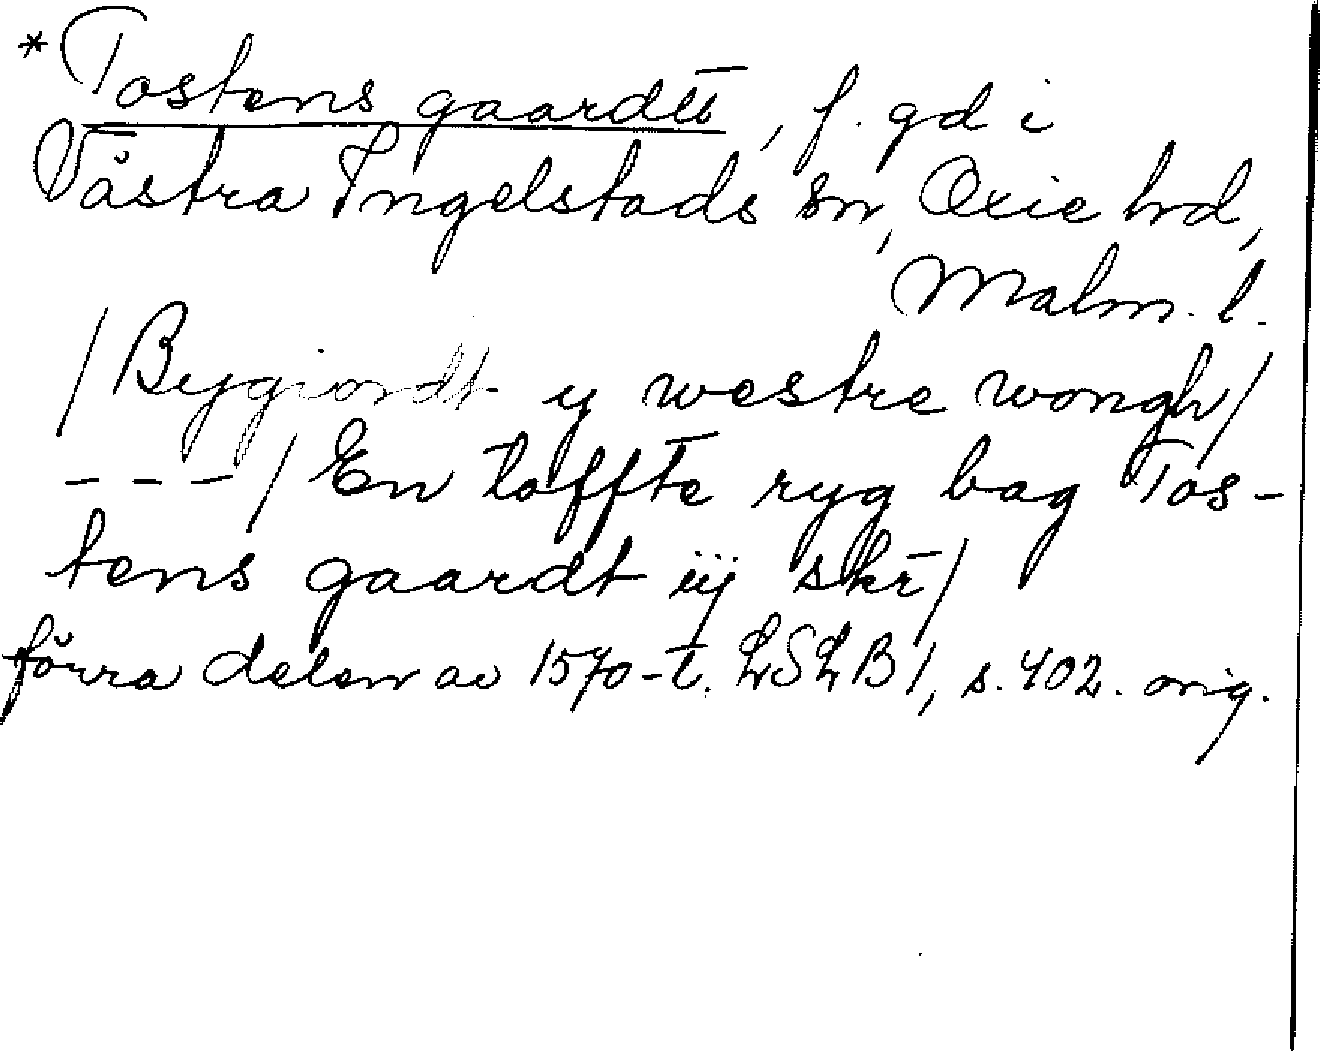 *Tostens gaardtt, f. gd i
Västra Ingelstads sn, Oxie hd,
Malm. l.
/Bygiordt y westre wongh/
---/ En toffte ryg bag Tos-
tens gaardt iij skr/
förra delen av 1570-t. LSLB 1, s. 402. orig.